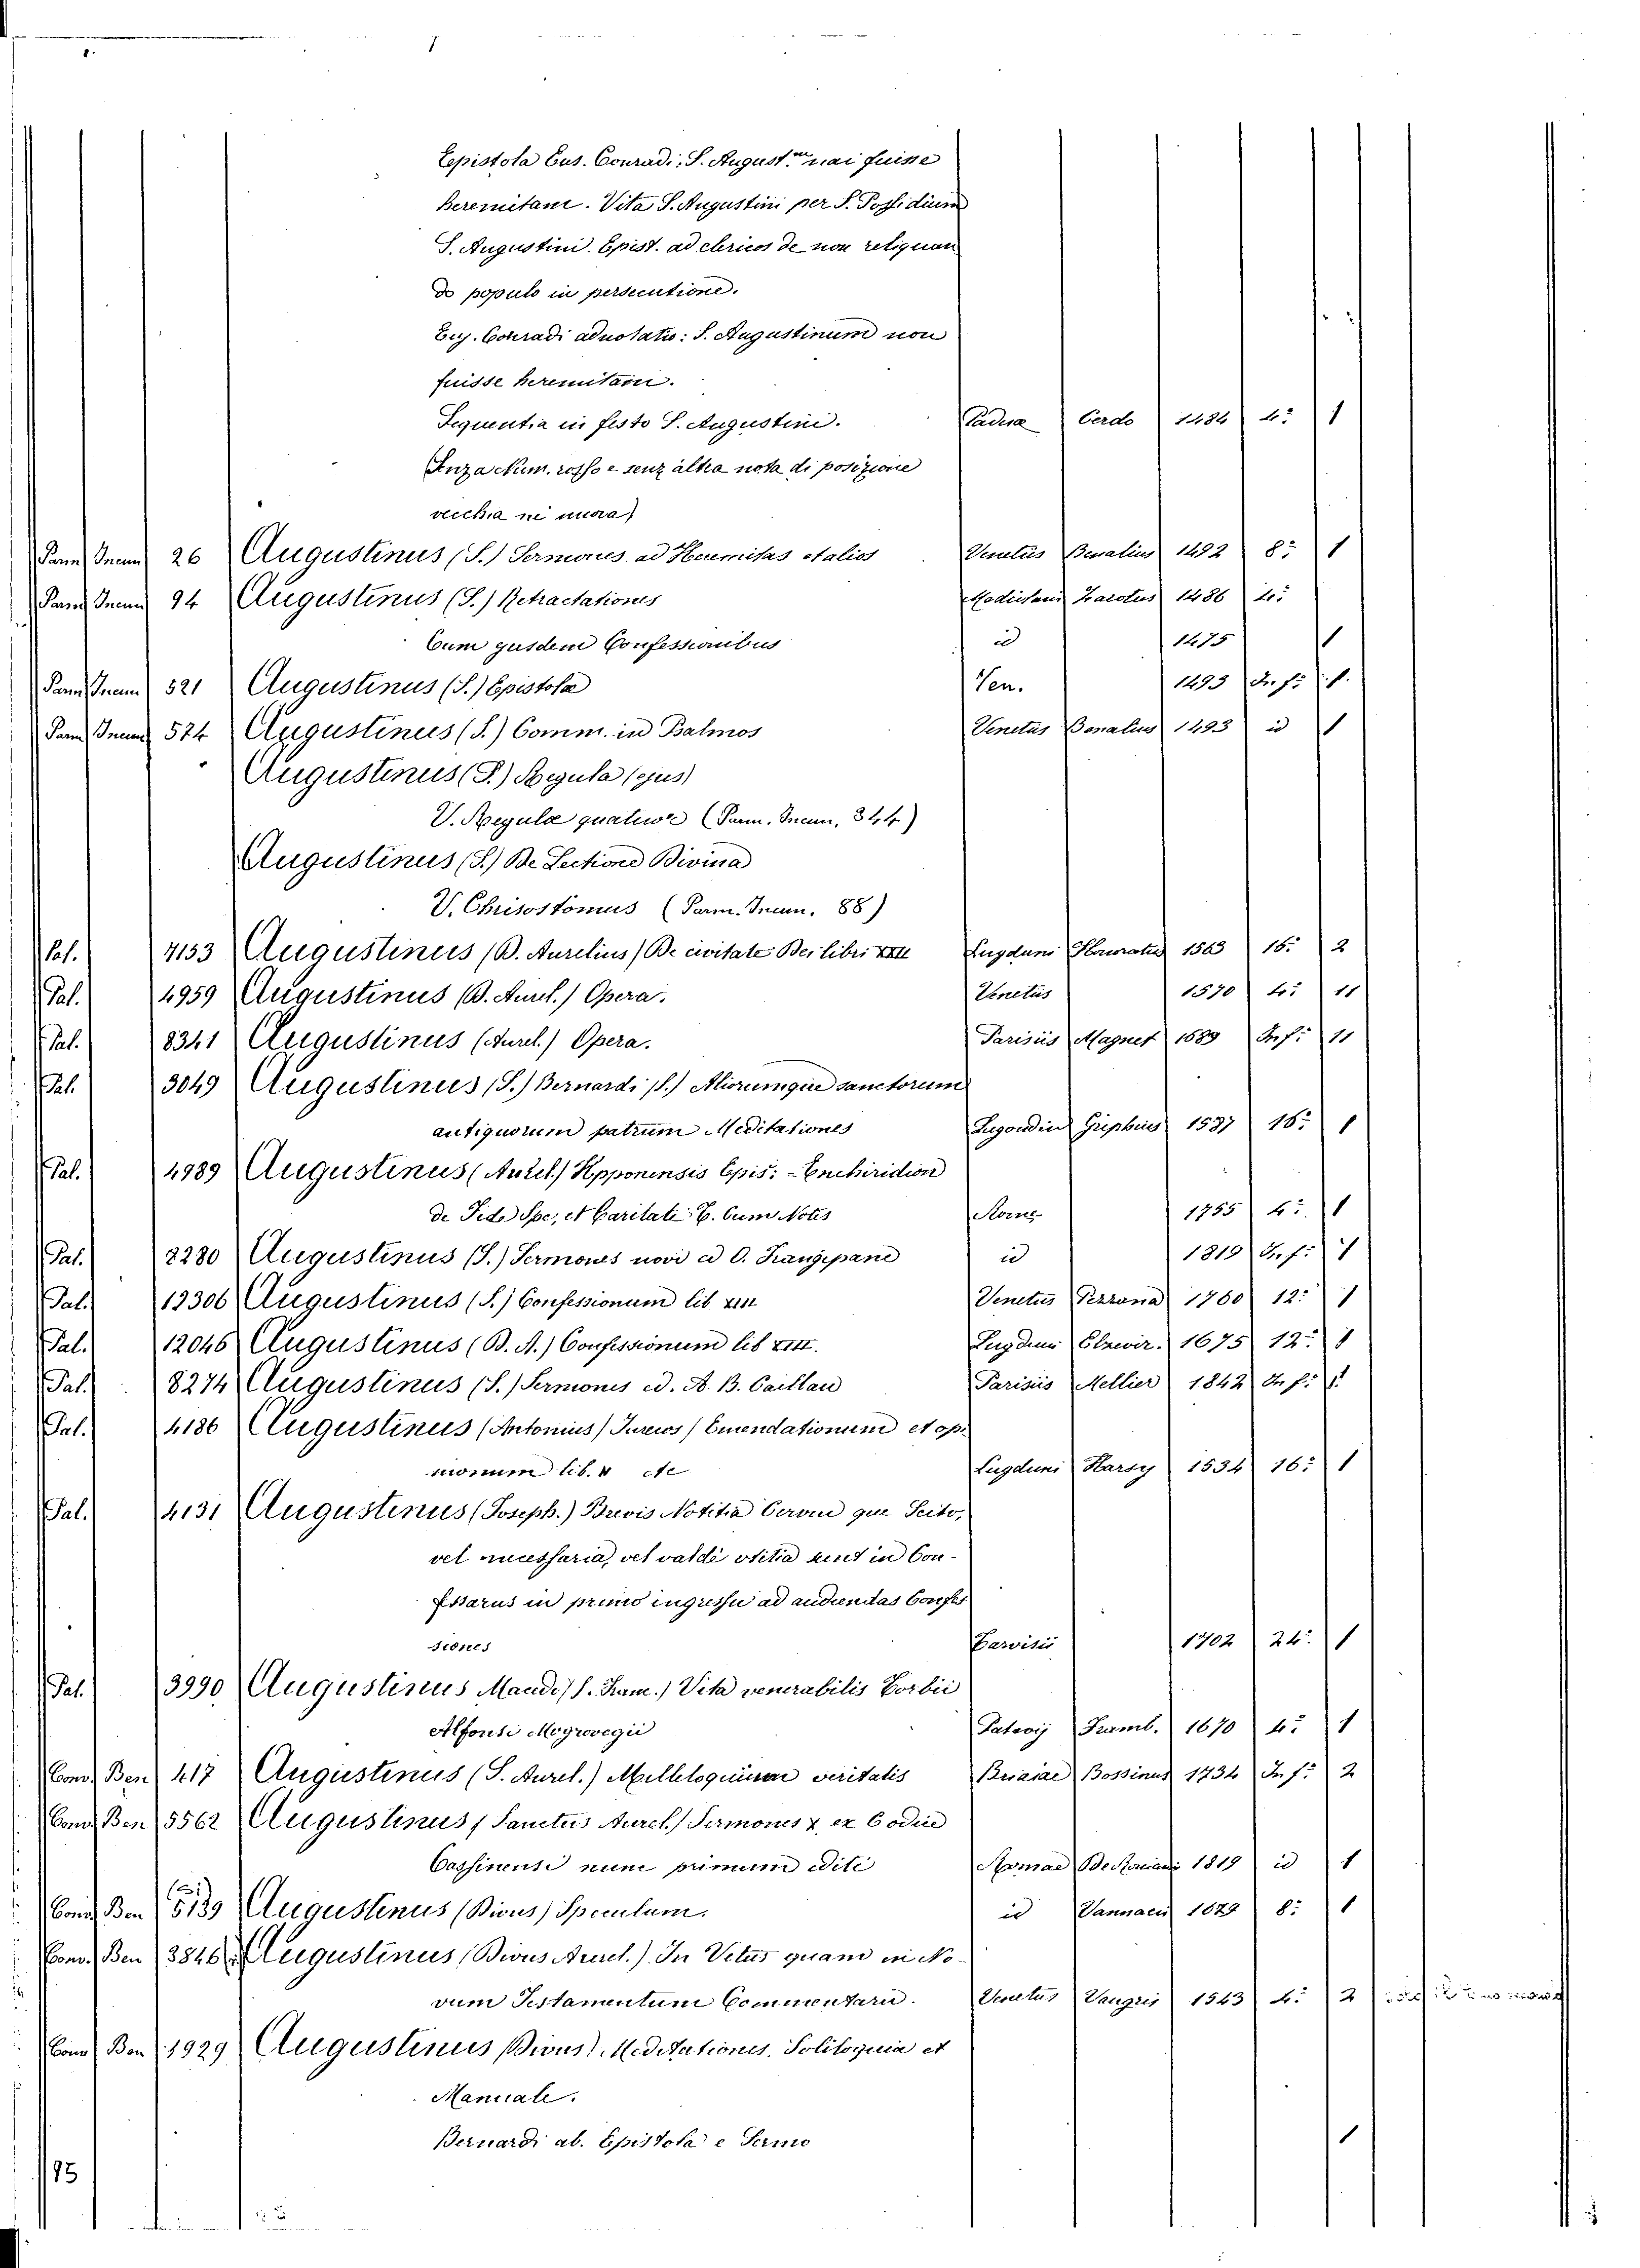 Epistola Eus. Conradi, S. August.um nai fuisse
heremitam. Vita S. Augustini per S. Possidium
S. Augustini. Epist. ad clericos de non reliquan
do populo in persecutione.
Eus. Conradi adnotatio: S. Augustinum non
fuisse heremitam.
Sequentia in festo S. Augustini. Padua Cerdo 1484 4: 1
(Senza Num. rosso e senz'altra nota di posizione
vecchia ne nuova)
Parm. Incun. 26 Augustinus (S.) Sermones ad Heremitas et alios Venetiis Benalius 1492 8: 1
Parm. Incun. 94 Augustinus (S.) Retractationes Mediolani Zarotus 1486 4:
Cum ejusdem Confessionibus id 1475 1
Parm. Incun. 521 Augustinus (S.) Epistolae Ven. 1493 In f: 1.
Parm. Incun. 574 Augustinus (S.) Comm. in Psalmos Venetiis Benalius 1493 id 1
Augustinus (S.) Regula (ejus)
V. Regulae quatuor (Parm. Incun. 344)
Augustinus (S.) De Lectione Divina
V. Chrisostomus (Parm. Incun. 88)
Pal. 4153 Augustinus (D. Aurelius) De civitate Dei libri XXII Lugduni Honoratus 1563 16: 2
Pal. 4959 Augustinus (D. Aurel.) Opera. Venetiis 1570 4: 11
Pal. 8341 Augustinus (Aurel.) Opera. Parisiis Magnet 1689 In f: 11
Pal. 3049 Augustinus (S.) Bernardi (S.) Aliorumque sanctorum
antiquorum patrum Meditationes Lugduni Griphius 1587 16: 1
Pal. 4989 Augustinus (Aurel.) Hipponensis Epis: - Enchiridion
de Fide Spe, et Caritate &. Cum Notis Romae 1755 4: 1
Pal. 2280 Augustinus (S.) Sermones novi ed O. Frangipane id 1819 In f: 1
Pal. 12306 Augustinus (S.) Confessionum lib XIII Venetiis Pezzana 1760 12: 1
Pal. 12046 Augustinus (D. A.) Confessionum lib XIII. Lugduni Elzevir. 1675 12: 1
Pal. 8274 Augustinus (S.) Sermones ed. A. B. Caillau Parisiis Mellier 1842 In f: 1
Pal. 4186 Augustinus (Antonius) Jurecs) Emendationum et opi
nionum lib. 4 etc Lugduni Harsy 1534 16: 1
Pal. 4131 Augustinus (Joseph.) Brevis Notitia eorum que Scito,
vel necessaria, vel valde utilia sunt in Con-
fessarus in primo ingressu ad audiendas Confes
siones Tarvisii 1702 24: 1
Pal. 3990 Augustinus Maade (S. Fran.) Vita venerabilis Toribii
Alfonsi Mogrovegii Patavij Framb. 1670 4: 1
Conv. Ben 417 Augustinus (S. Aurel.) Milleloquium veritatis Brixiae Bossinus 1734 In f: 2
Conv. Ben 5562 Augustinus (Sanctus Aurel.) Sermones X, ex Codice
Cassinensi nunc primum editi Romae De Romanis 1819 id 1
Conv. Ben 5139 Augustinus (Divus) Speculum. id Vannacci 1679 8: 1
Conv. Ben 3846 Augustinus (Divus Aurel.) In Vetus quam in No-
vum Testamentum Commentarii. Venetiis Valgrisi 1543 4: 2
Conv Ben 1929 Augustinus (Divus) Meditationes, Soliloquia et
Manuale.
Bernardi ab. Epistola e Sermo 1
95